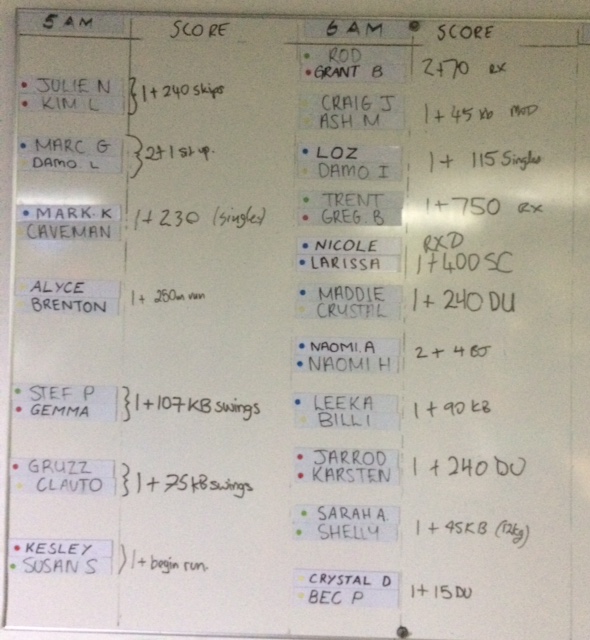 5 AM SCORE
JULIE N
KIM L
1+240 skips
MARC G
DAMO. L
2+1 st up.
MARK. K
CAVEMAN
1+230 (singles)
ALYCE
BRENTON
1+ 250m run
STEF P
GEMMA
1+107 KB swings
GRUZZ
CLAUTO
1+75 kB swings
KESLEY
SUSAN S
1+begin run.
6 AM SCORE
ROD
GRANT B
2+70 RX
CRAIG J
ASH M
1+45 kb MOD
LOZ
DAMO I
1+ 115 Singles
TRENT
GREG. B
1+750 RX
NICOLE
LARISSA
RXD
1+400 SC
MADDIE
CRYSTAL
1+240 DU
NAOMI.A
NAOMI H
2 + 4 BJ
LEEKA
BILLI
1+90 KB
JARROD
KARSTEN
1+240 DU
SARAH A
SHELLY
1+45KB (12kg)
CRYSTAL D
BEC P
1+15 DU